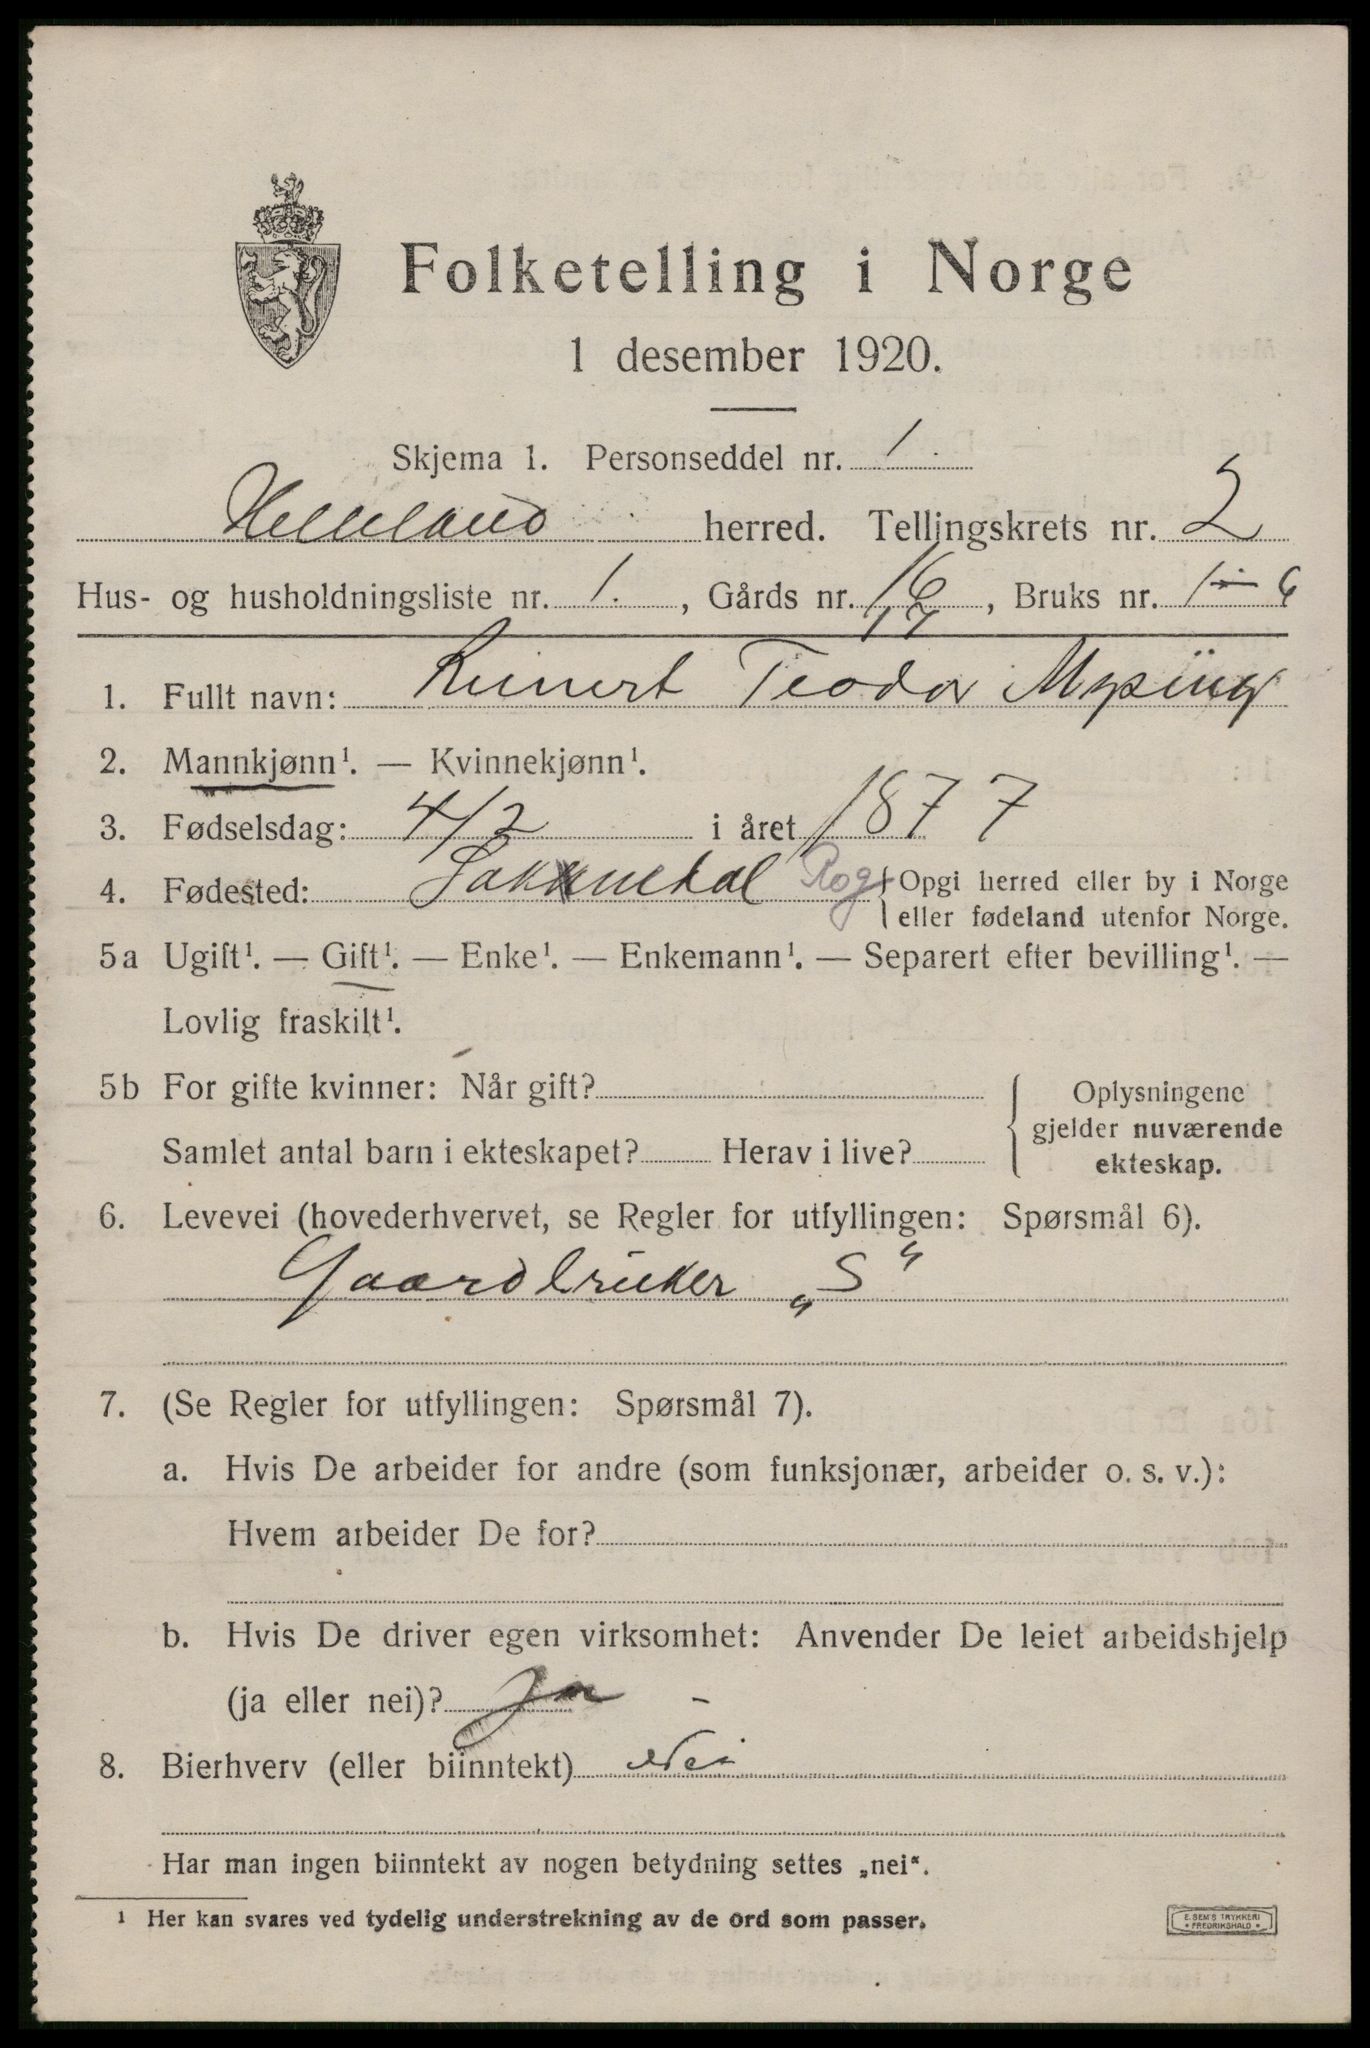 Folketelling i Norge
1 desember 1920.
Skjema 1. Personseddel nr. 1.
Helleland herred. Tellingskrets nr. 2
Hus- og husholdningsliste nr. 1., Gårds nr. 16, Bruks nr. 1 6
17
1. Fullt navn: Reinert Teodor Mysing
2. Mannkjønn¹. — Kvinnekjønn¹.
3. Fødselsdag: 4/2 i året 1877
4. Fødested: Rog { Opgi herred eller by i Norge
eller fødeland utenfor Norge.
5a Ugift¹. — Gift¹. — Enke¹. — Enkemann¹. — Separert efter bevilling¹. —
Lovlig fraskilt¹.
5b For gifte kvinner: Når gift?
Samlet antal barn i ekteskapet? Herav i live?
} Oplysningene
gjelder nuværende
ekteskap.
6. Levevei (hovederhvervet, se Regler for utfyllingen: Spørsmål 6).
Gaardbruker „S"
7. (Se Regler for utfyllingen: Spørsmål 7).
a. Hvis De arbeider for andre (som funksjonær, arbeider o. s. v.):
Hvem arbeider De for?
b. Hvis De driver egen virksomhet: Anvender De leiet arbeidshjelp
(ja eller nei)? Ja –
8. Bierhverv (eller biinntekt) Nei
Har man ingen biinntekt av nogen betydning settes „nei“.
¹ Her kan svares ved tydelig understrekning av de ord som passer.
E. SEM'S TRYKKERI
• FREDRIKSHALD •